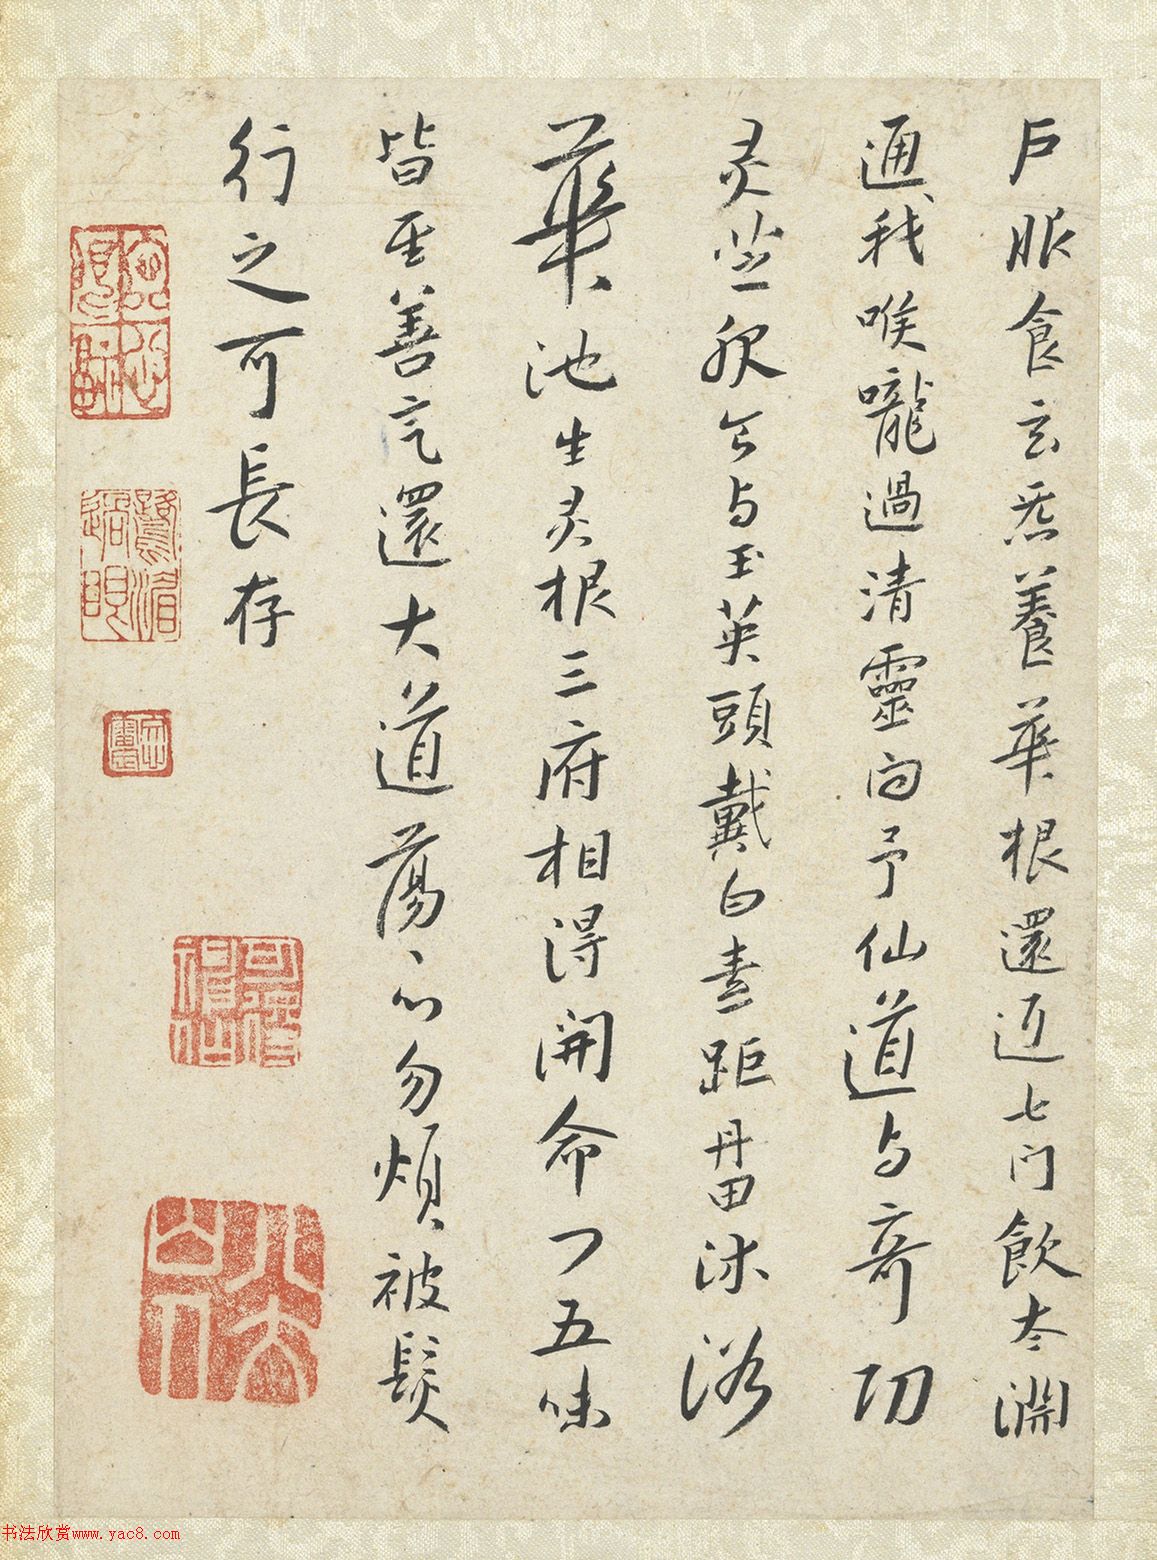 戶服食玄炁養華根還返七門飲太淵
通我喉嚨過清靈問予仙道与奇功
灵芝服兮与玉英頭戴白素距丹田沐浴
華池生灵根三府相得開命門五味
皆至善气還大道蕩〻心勿煩被髮
行之可長存
可得神仙
八大山人
书法欣赏www.yac8.com